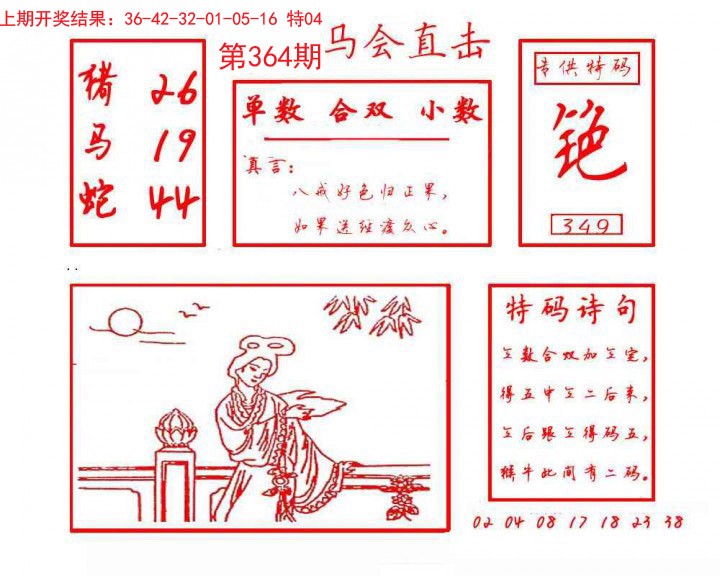 上期开奖结果：36-42-32-01-05-16 特04
第364期 马会直击
猪 26
马 19
蛇 44
单数 合双 小数
真言：
八戒好色归正果，
如果送经渡众心。
专供特码
349
特码诗句
数合双加
得五中二后来，
后跟得码五，
猴牛此间有二码。
02 04 08 17 18 23 38